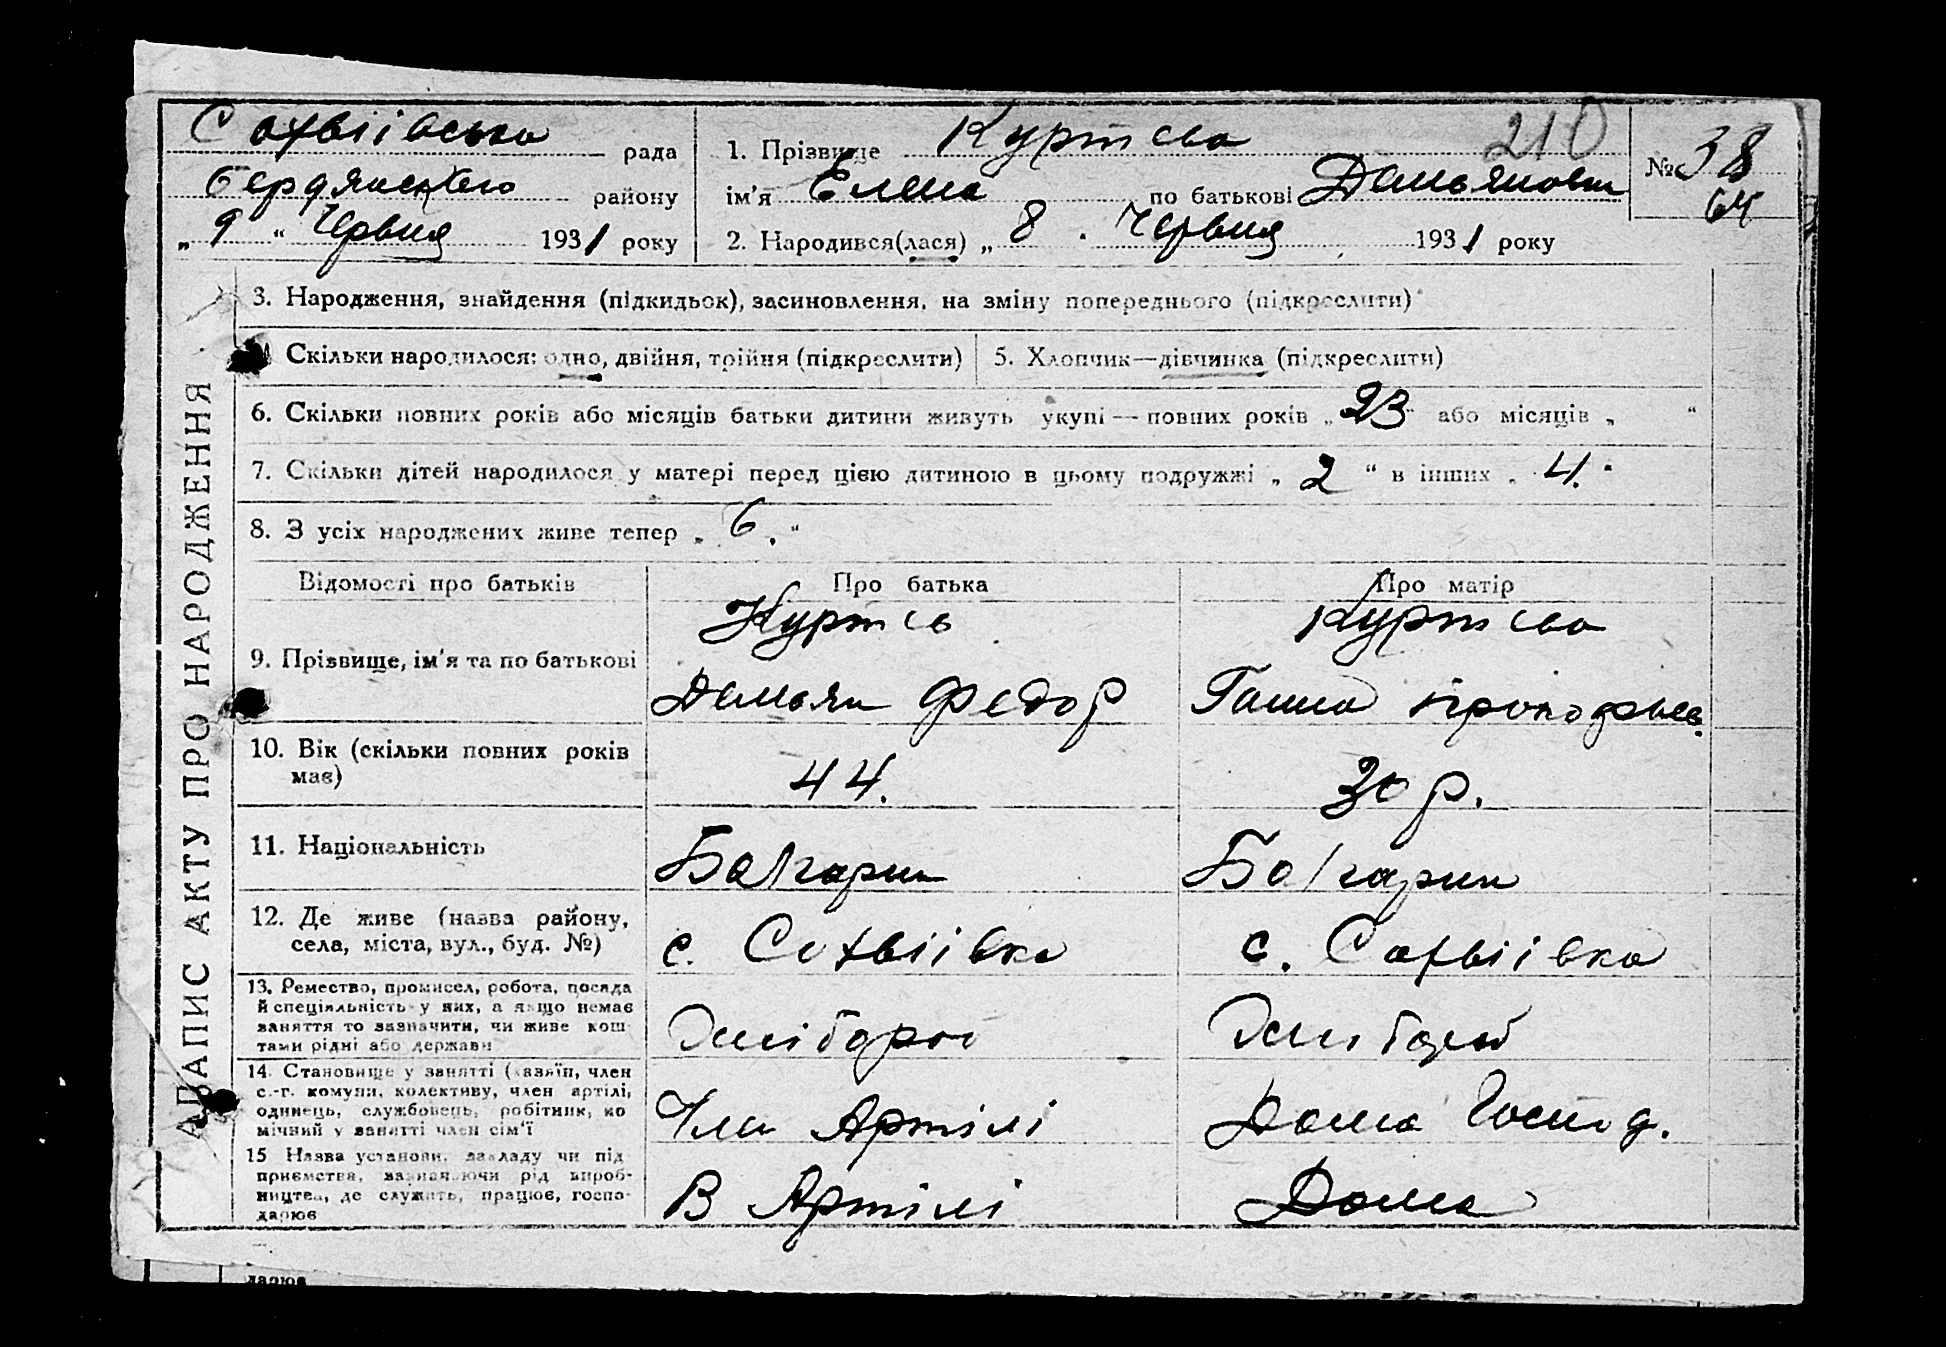 Софіівська рада
Бердянського району
„ 9 “ Червня 1931 року
1. Прізвище Куртєва 210
ім'я Елена по батькові Демьяновн
2. Народився(лася) „ 8 . Червня 1931 року
№ 38
64
ЗАПИС АКТУ ПРО НАРОДЖЕННЯ
3. Народження, знайдення (підкидьок), засиновлення, на зміну попереднього (підкреслити)
Скільки народилося: одно, двійня, трійня (підкреслити)
5. Хлопчик—дівчинка (підкреслити)
6. Скільки повних років або місяців батьки дитини живуть укупі — повних років „ 23 “ або місяців „ “
7. Скільки дітей народилося у матері перед цією дитиною в цьому подружжі „ 2 “ в інших „ 4. “
8. З усіх народжених живе тепер „ 6. “
Відомості про батьків Про батька Про матір
9. Прізвище, ім'я та по батькові
Куртєв
Демьян Федор
Куртєва
Ганна
10. Вік (скільки повних років має)
44.
30 р.
11. Національність
Болгарин
Болгарин
12. Де живе (назва району, села, міста, вул., буд. №)
с.
с.
13. Ремество, промисел, робота, посада
й спеціяльність у них, а якщо немає
заняття то зазначити, чи живе кош-
тами рідні або держави
14. Становище у занятті (хазяїн, член
с.-г. комуни, колективу, член артілі,
одинець, службовець, робітник, по
мічний у занятті член сім'ї
Член Артілі
Дома Господ.
15 Назва установи, закладу чи під
приємства, зазначаючи рід вироб-
ництва, де служить, працює, госпо-
дарює
В Артілі
Дома
дарює